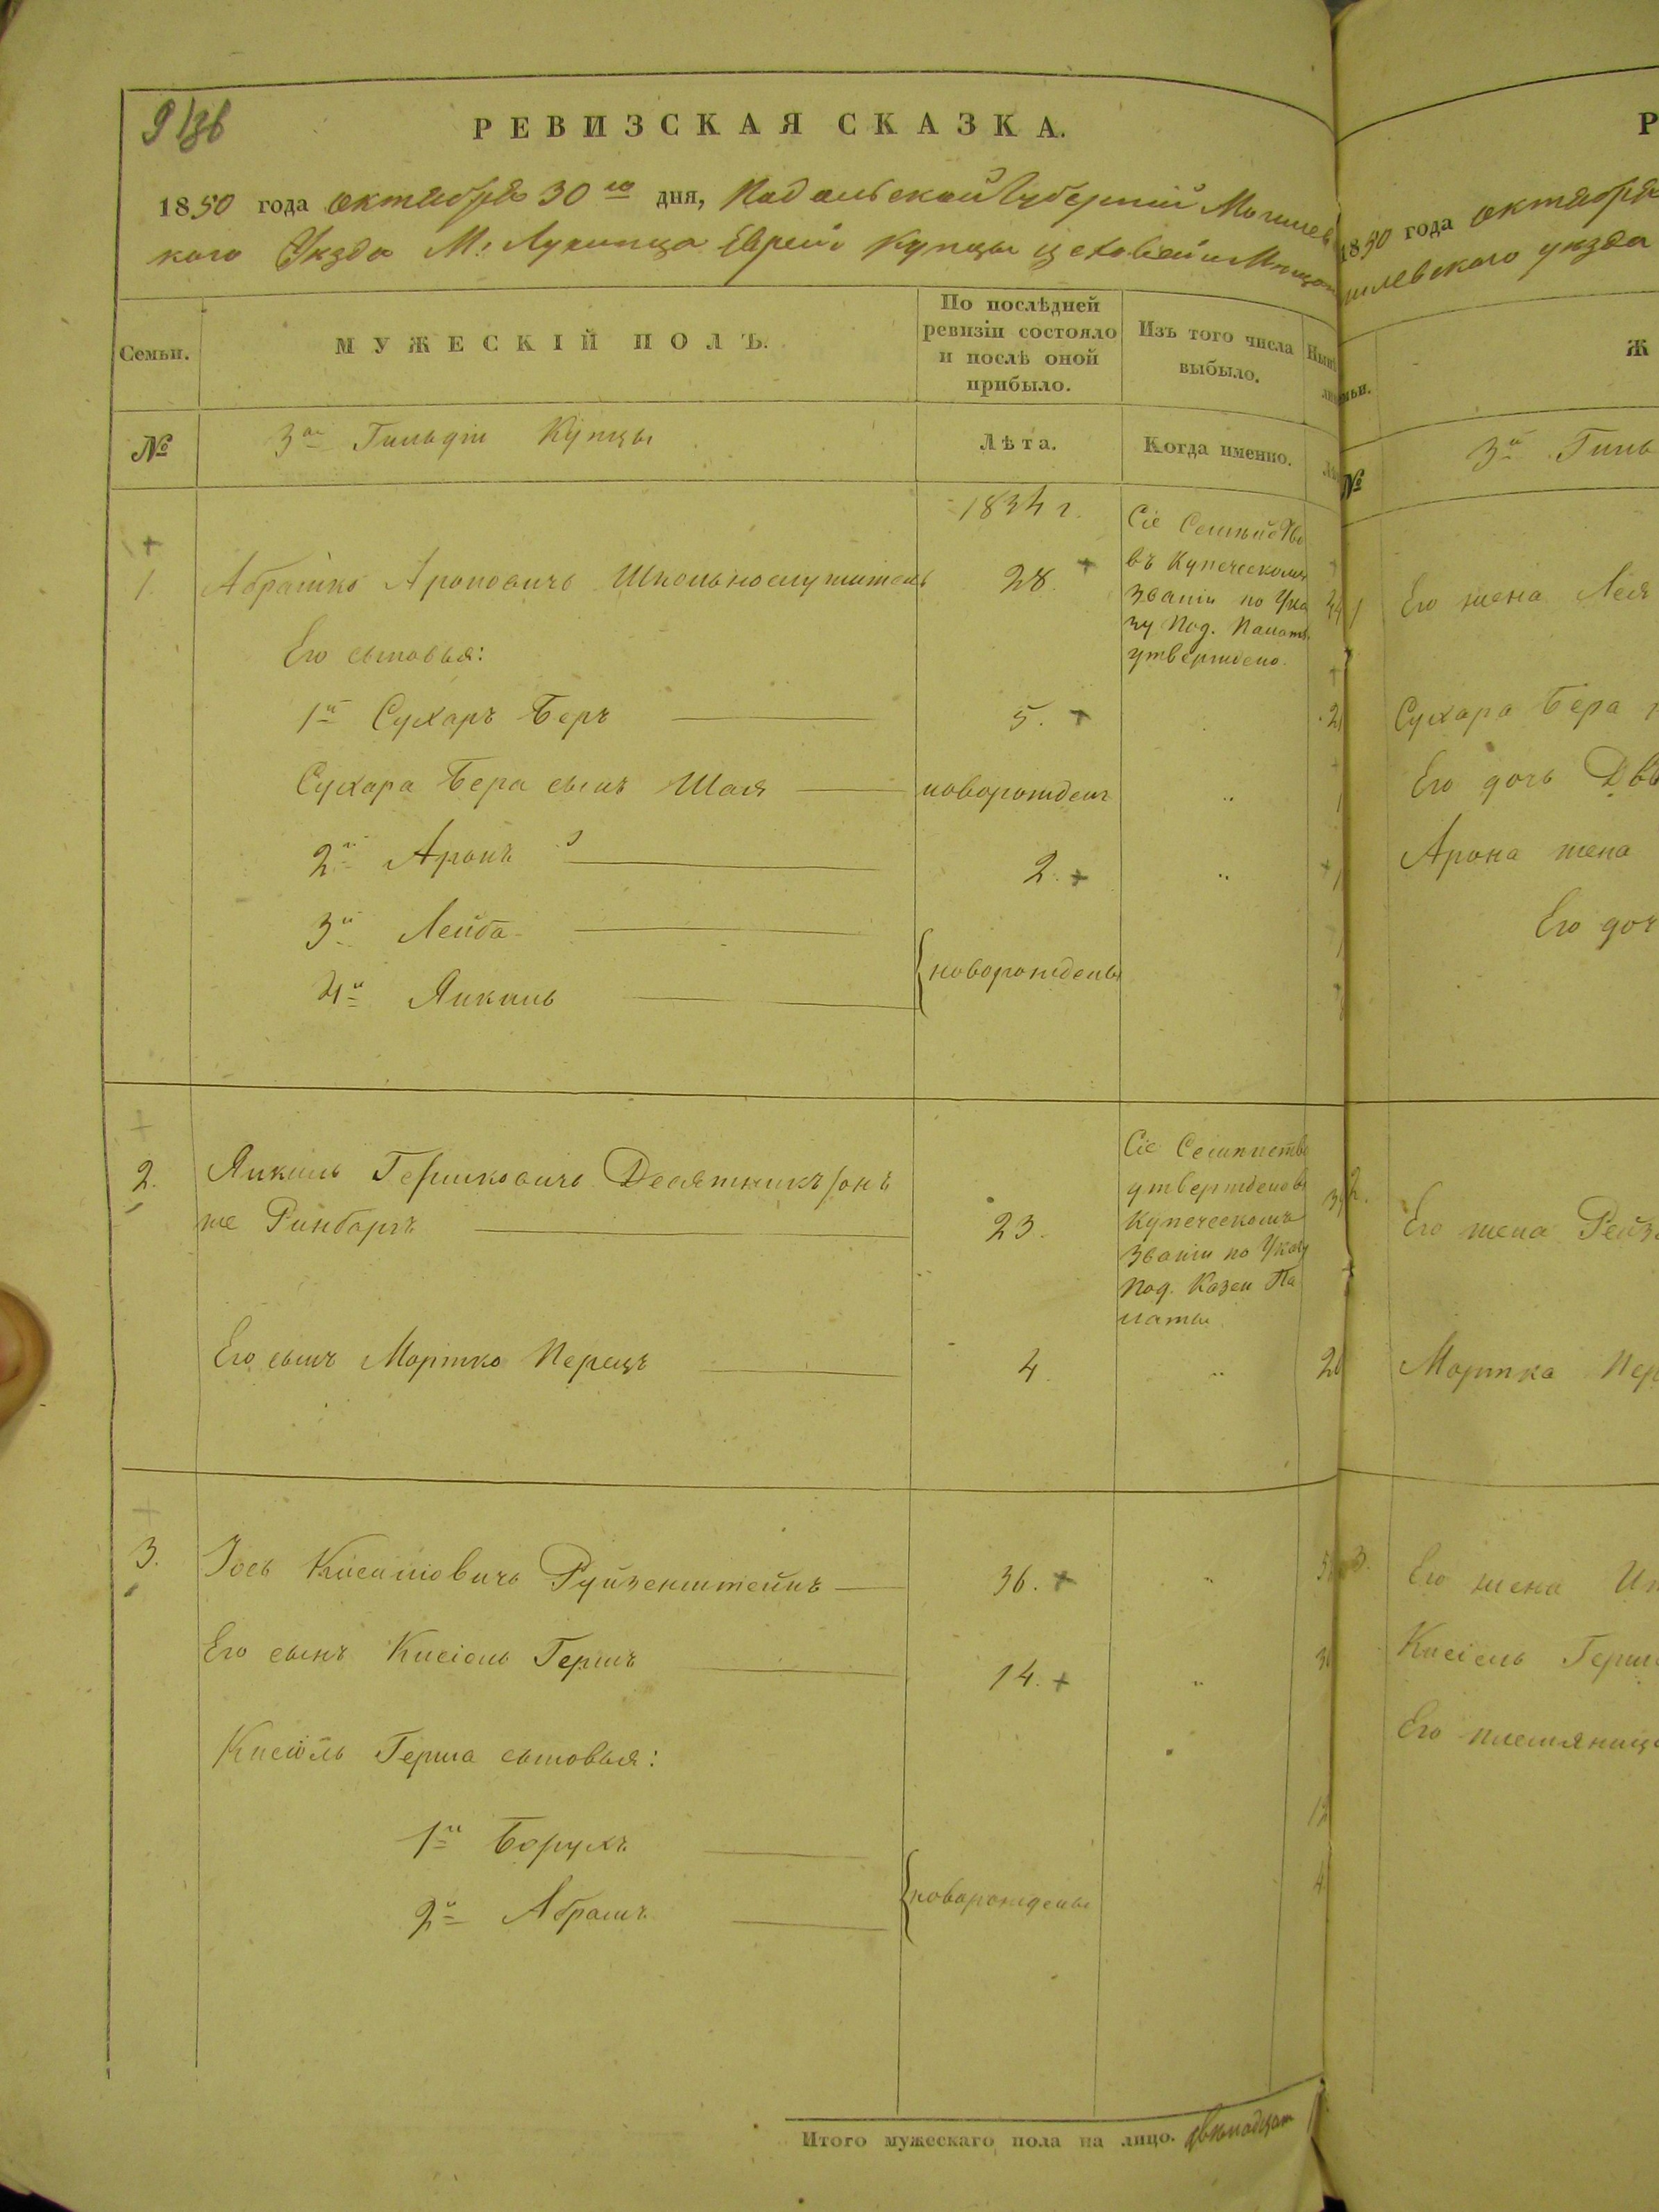 РЕВИЗСКАЯ СКАЗКА.
1850 года октября 30го дня, Подольской Губерніи Могилев
кого Уѣзда М: Лучинца Еврей Купцы цеховей и Мѣщан
Семьи.
МУЖЕСКІЙ ПОЛЪ.
По послѣдней
ревизіи состояло
и послѣ оной
прибыло.
Изъ того числа
выбыло.
№
3ей Гильдіи Купцы
Лѣта.
Когда именно.
1834 г.
1. Абрашко Ароновичъ Школьнослужитель 28.
Сіе Семѣйство
въ Купеческомъ
званіи по Ука
зу Под. Палаты
утверждено.
Его сыновья:
1й Сухаръ Беръ 5.
Сухара Бера сынъ Шая новорожденъ
2й Аронъ 2.
3й Лейба
4й Янкель
новорождены
2. Янкель Гершковичъ Десятникъ/онъ
же Ринбаргъ 23.
Сіе Семѣйство
утверждено въ
Купеческомъ
званіи по Указу
Под. Казен Па
латы
Его сынъ Мортко Перецъ 4
3. Іось Кисіиовичъ Руйзенштейнъ 36.
Его сынъ Кисіель Гершъ 14.
Кисіель Герша сыновья:
1й Борухъ
2й Абрамъ
новорождены
Итого мужескаго пола на лицо. двѣнадцат
Р
1850 года октября
илевского уѣзда
Ж
№
3й Гиль
1 Его жена Лея
Сухара Бера
Его дочь Дво
Арона жена
Его доч
2. Его жена Рейз
Мортка Пер
3. Его жена
Кисіель Герш
Его племяница